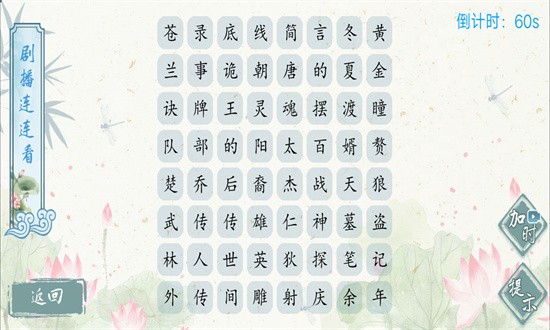 倒计时：60s
剧播连连看
苍录底线简言冬黄
兰事诡朝唐的夏金
诀牌王灵魂摆渡瞳
队部的阳太百婿赘
楚乔后裔杰战天狼
武传传雄仁神墓盗
林人世英狄探笔记
外传间雕射庆余年
加时
提示
返回